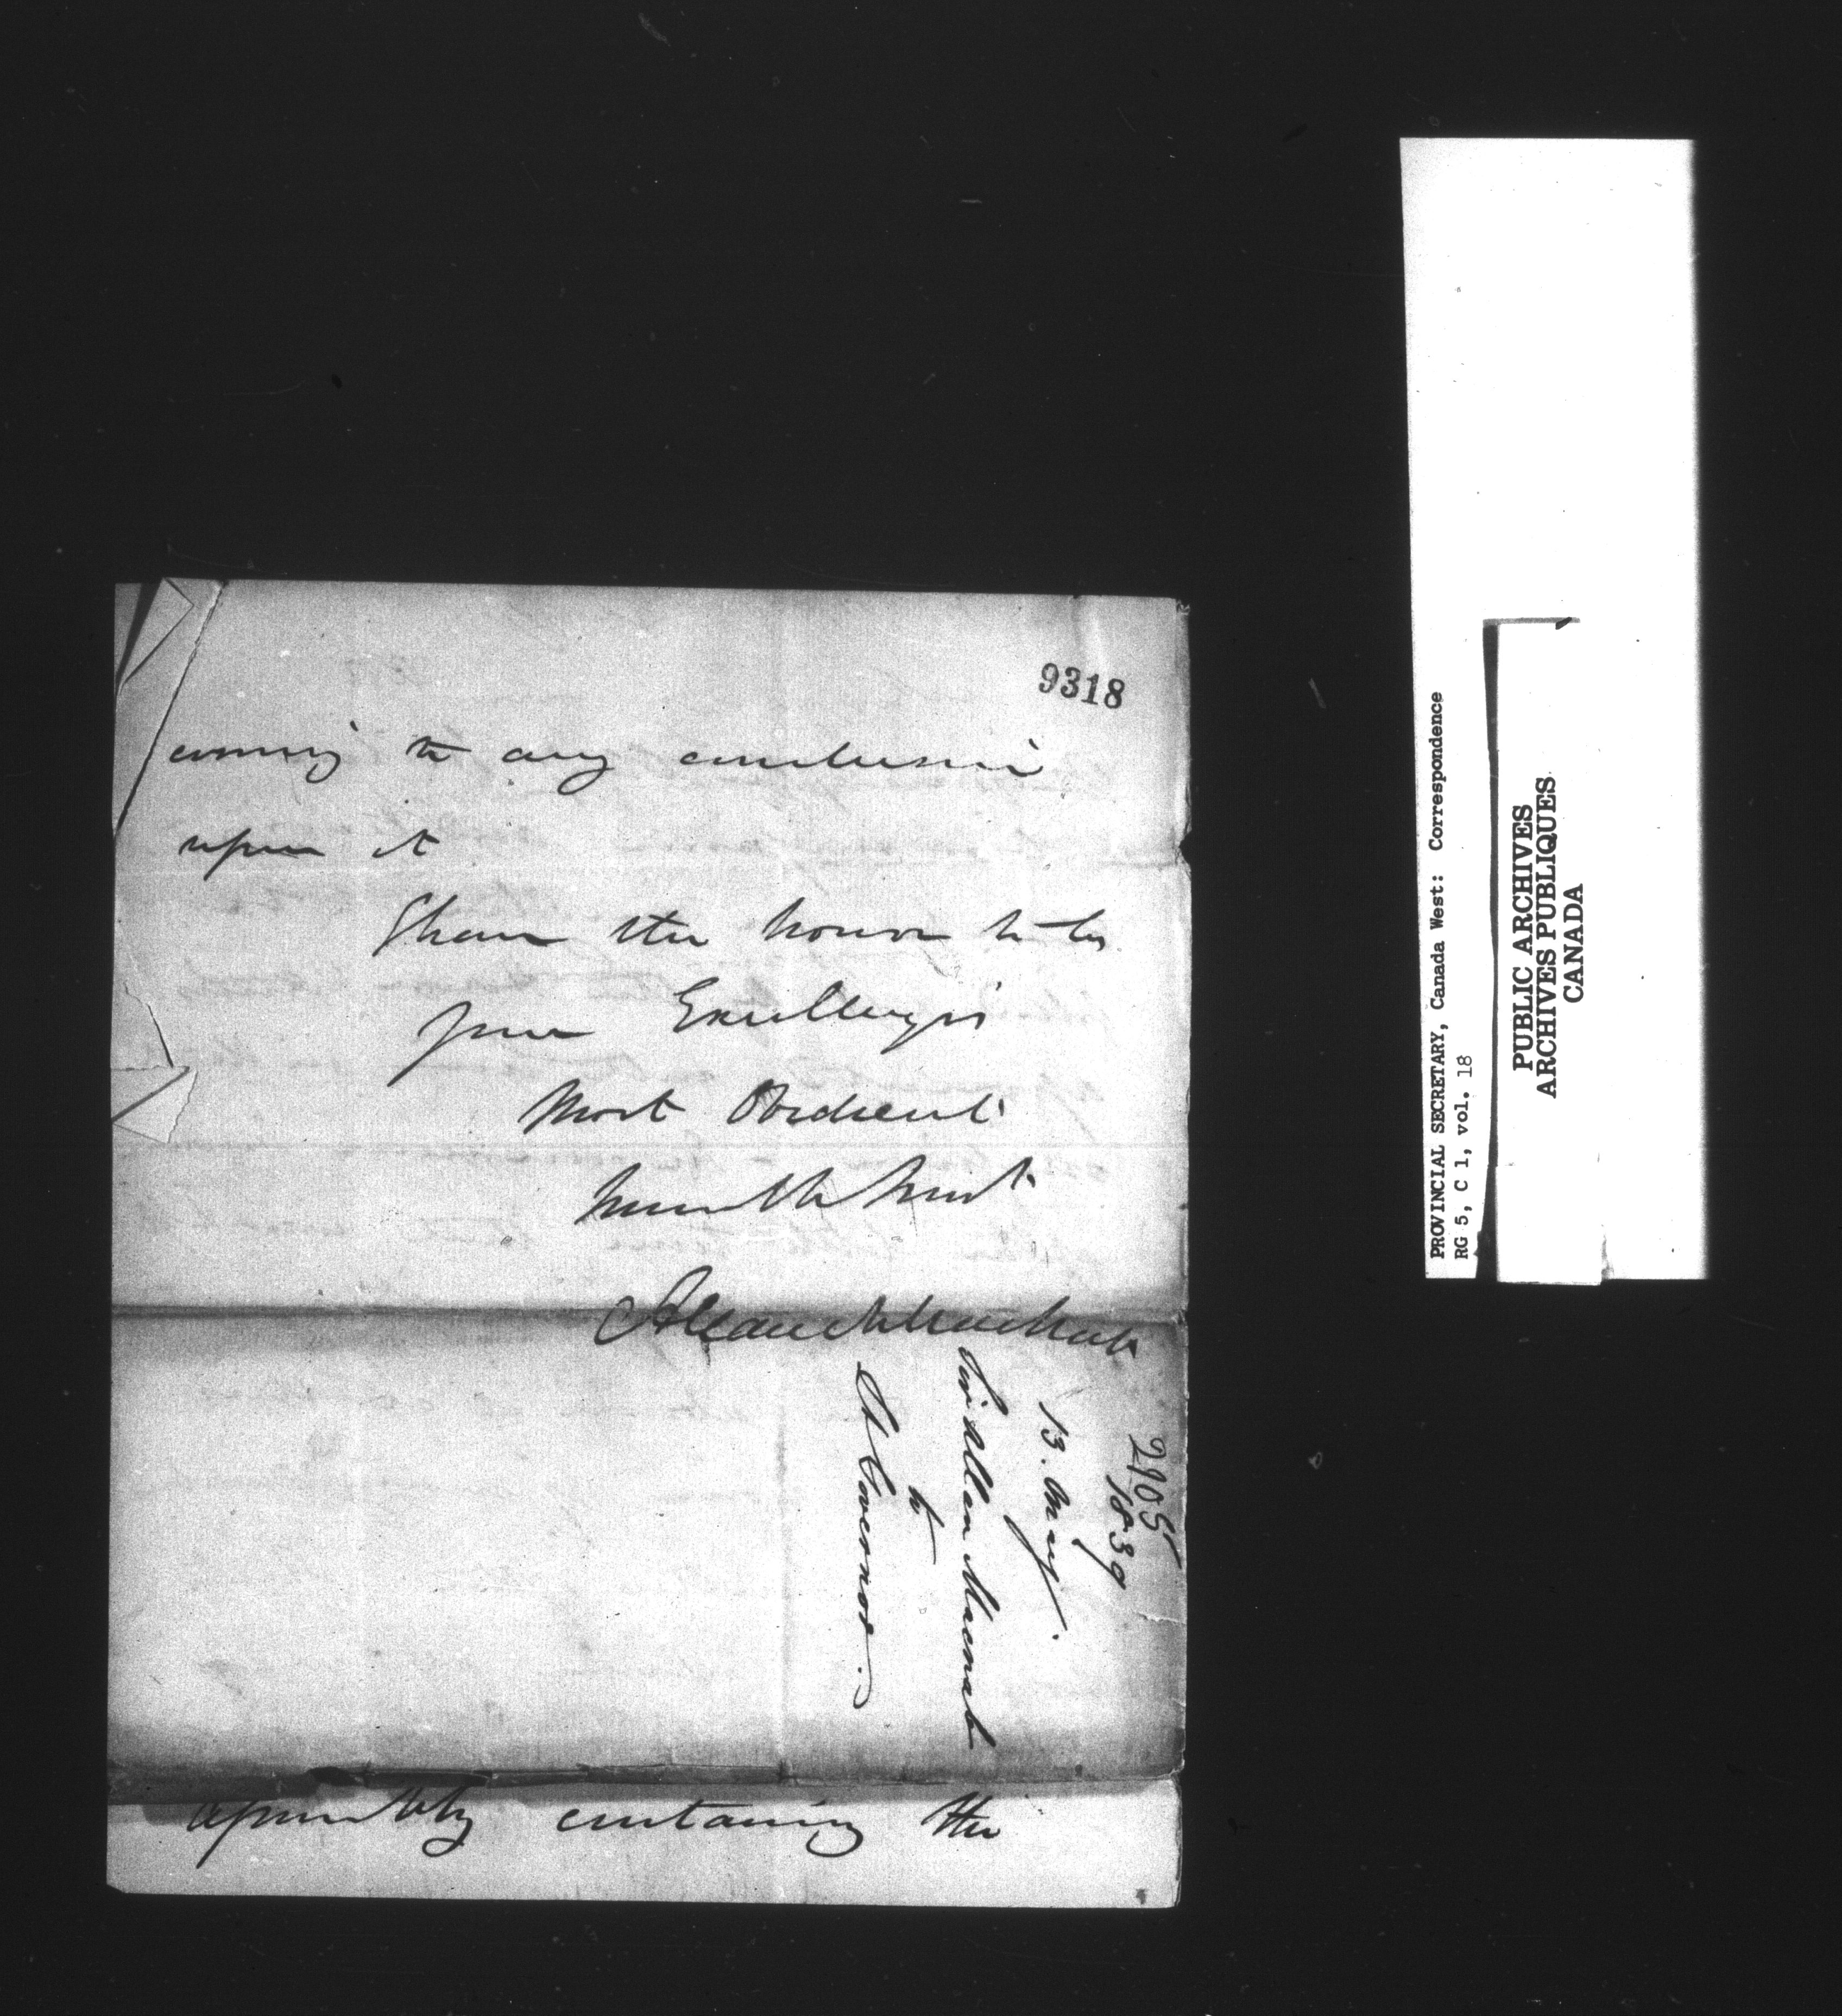 9318
coming to any conclusion
upon it
I have the honor to be
your Excellency's
Most Obedient
humble Servt
Allan N MacNab
2105
1839
13. May.
Sir Allan Macnab
to
Lt Governor.
assembly containing the
PROVINCIAL SECRETARY, Canada West: Correspondence
RG 5, C 1, vol. 18
PUBLIC ARCHIVES
ARCHIVES PUBLIQUES
CANADA